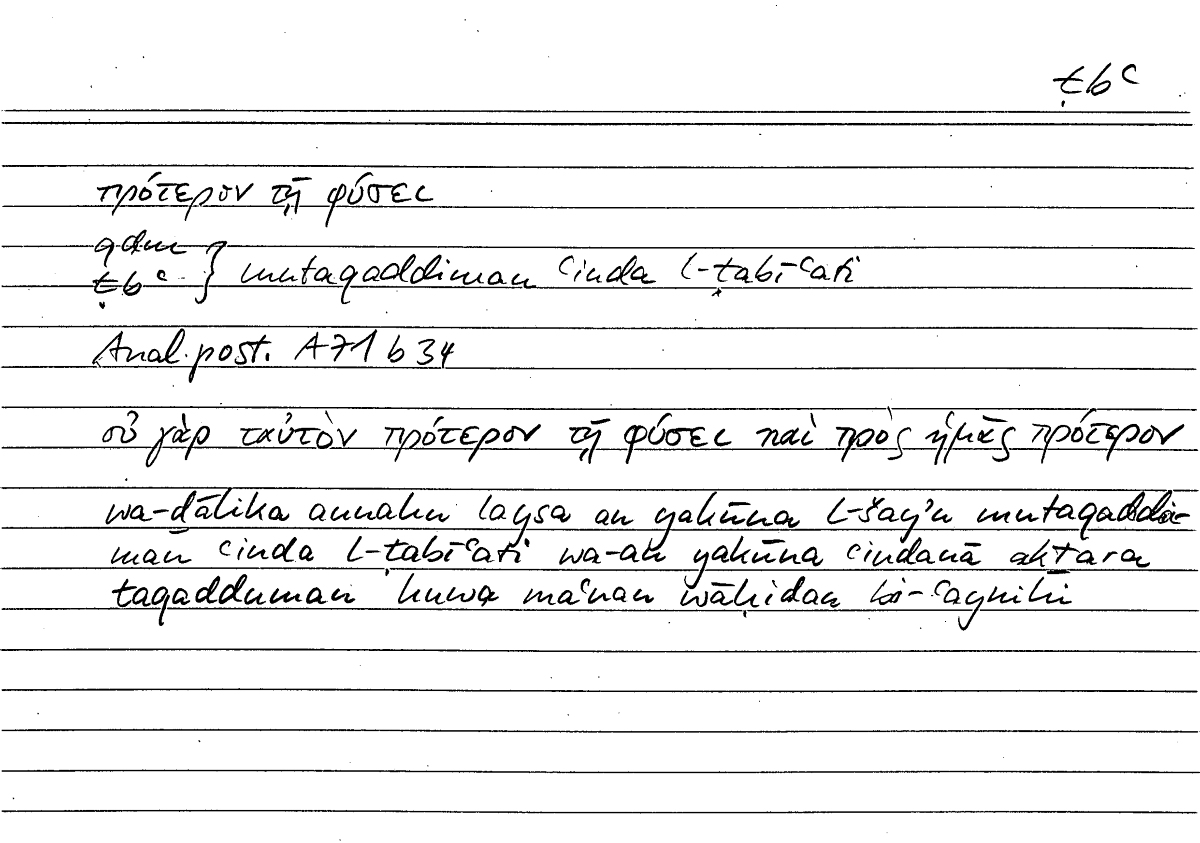 ṭbʿ
πρότερον τῇ φύσει
qdm
ṭbʿ } mutaqaddiman ʿinda l-ṭabīʿati
Anal. post. A71 b 34
οὐ γὰρ ταὐτὸν πρότερον τῇ φύσει καὶ πρὸς ἡμᾶς πρότερον
wa-ḏālika annahu laysa an yakūna l-šayʾu mutaqaddi-
man ʿinda l-ṭabīʿati wa-an yakūna ʿindanā akṯara
taqadduman huwa maʿnan wāḥidan bi-ʿaynihī